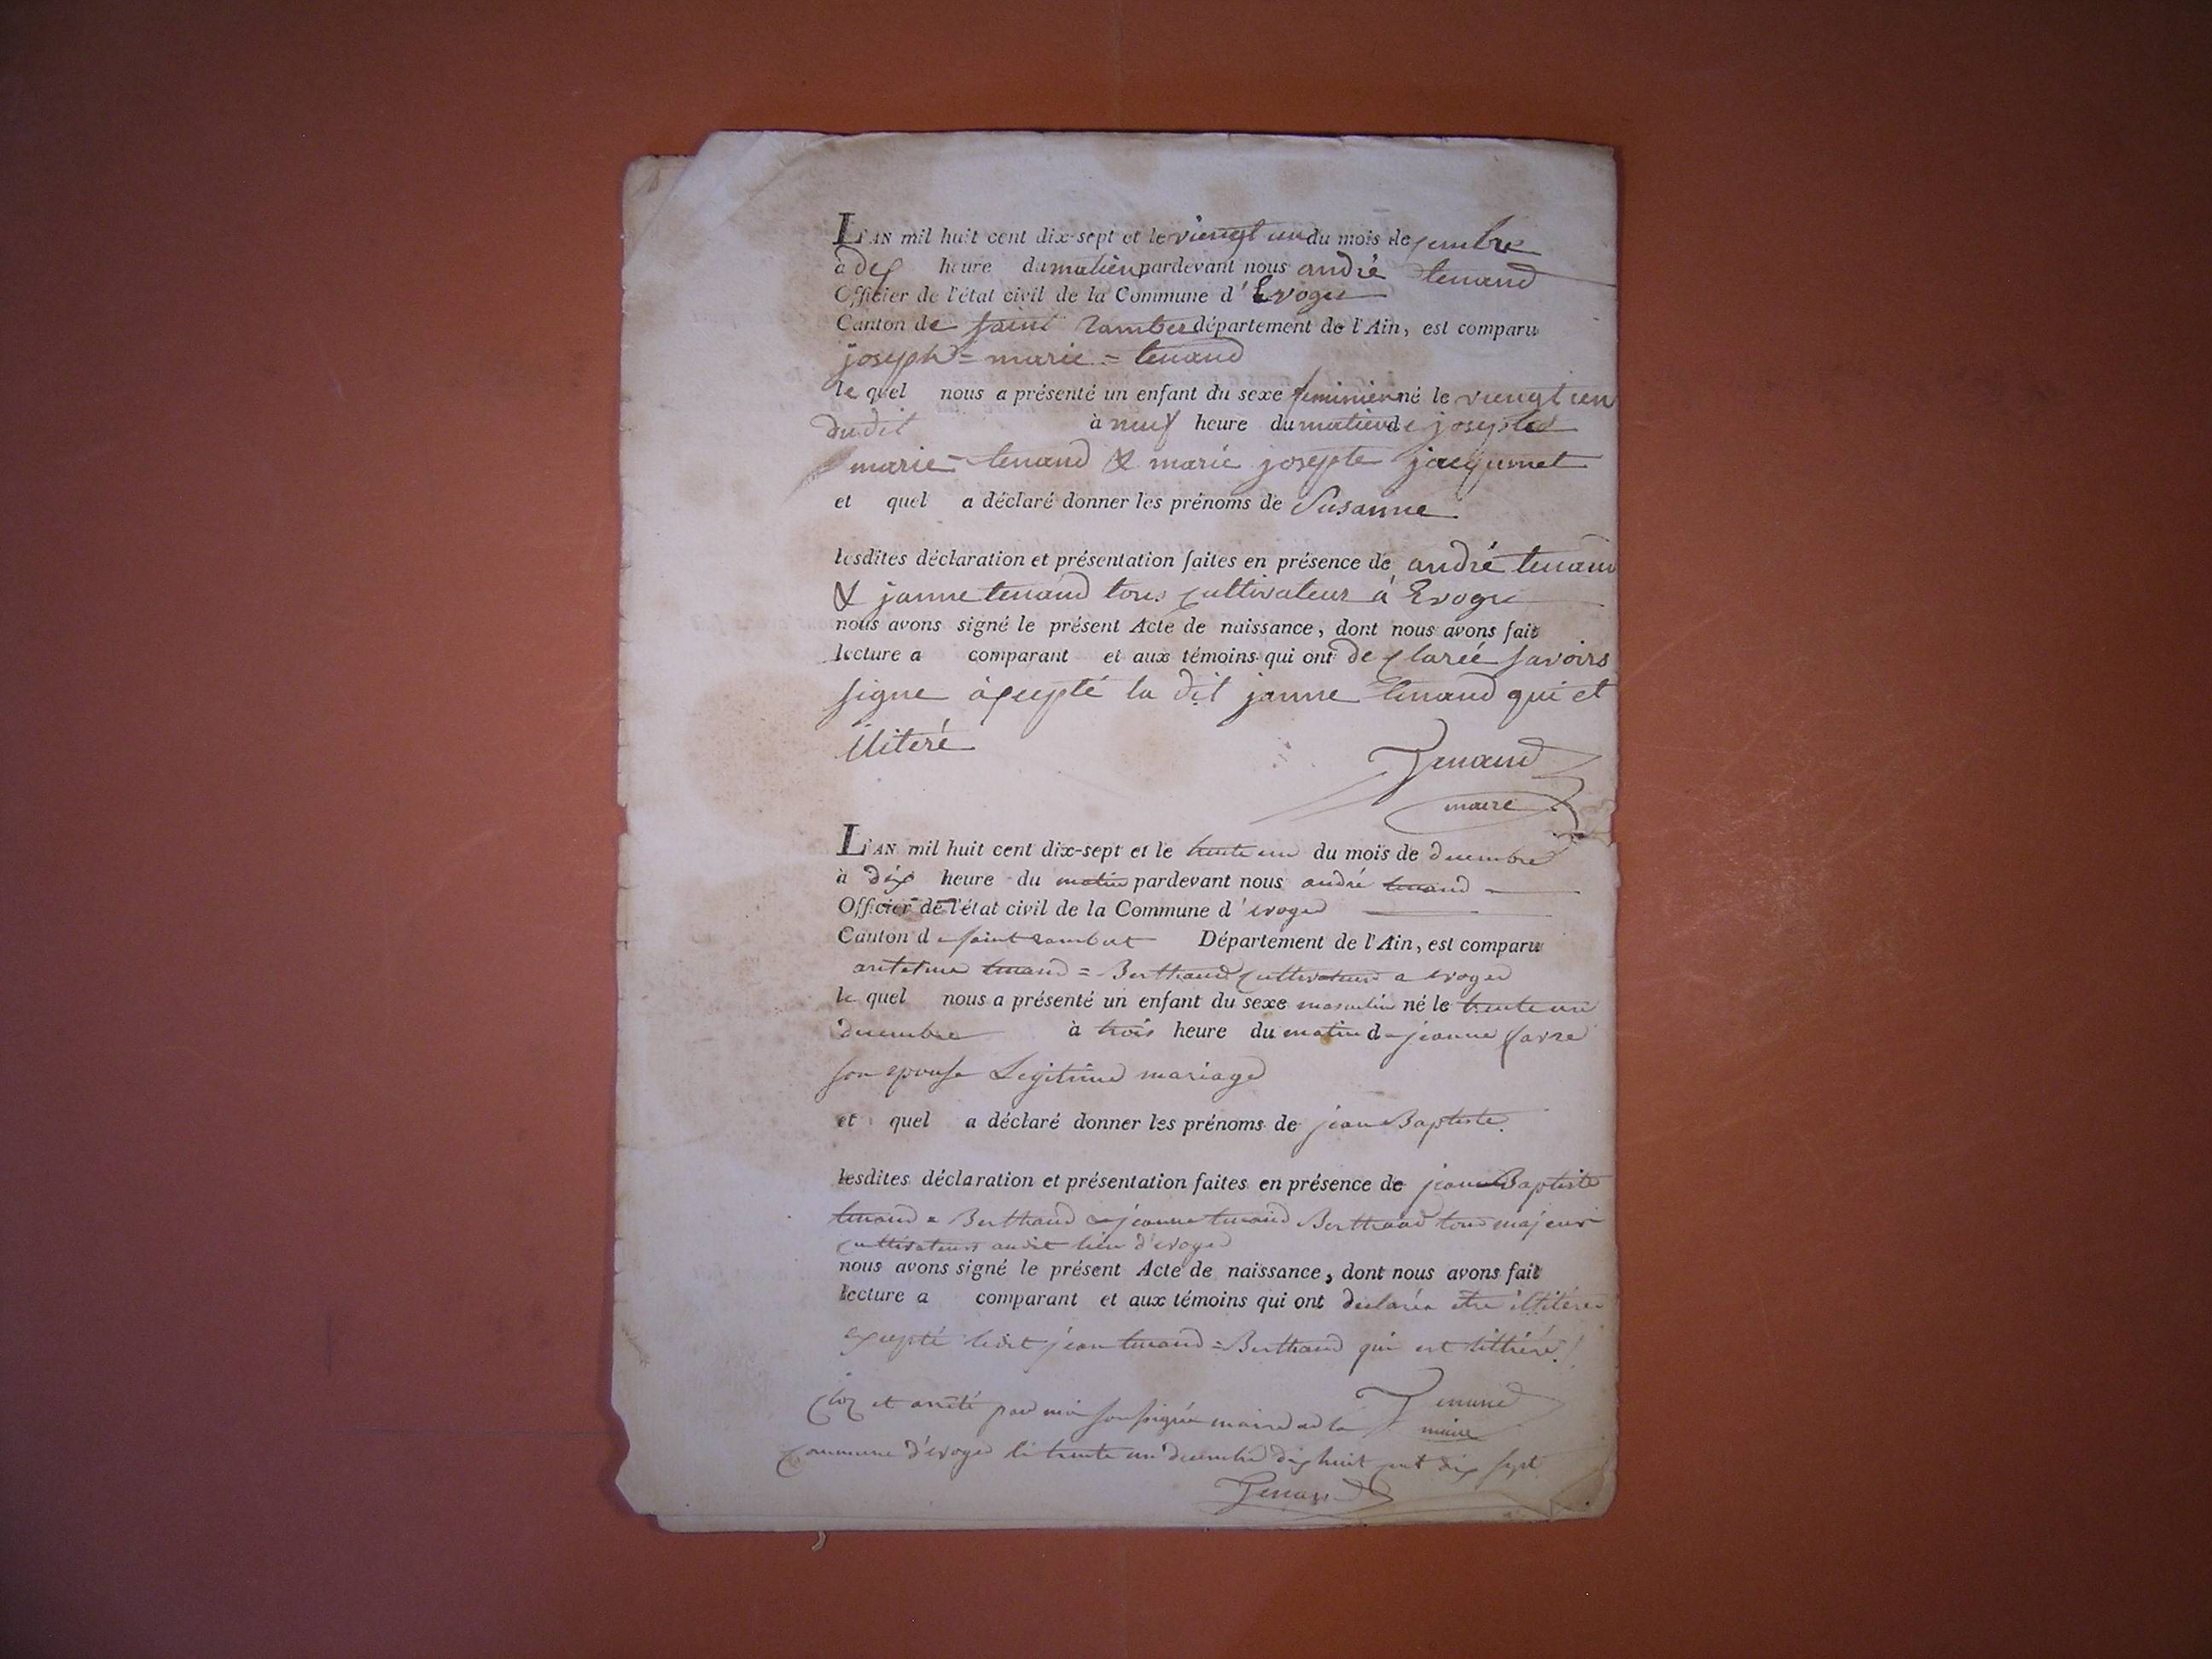 L'AN mil huit cent dix-sept et le viengt un du mois de
à heure du matien pardevant nous andré tenand
Officier de l'état civil de la Commune d'Evoge
Canton de saint Ramber département de l'Ain, est comparu
joseph = marie = tenand
le quel nous a présenté un enfant du sexe feminien né le viengt un
dudit à neuf heure du matien de joseph
marie - tenand & marie josepte jacquemet
et quel a déclaré donner les prénoms de Susanne
lesdites déclaration et présentation faites en présence de andré tenand
& janne tenand tous cultivateur à Evoge
nous avons signé le présent Acte de naissance, dont nous avons fait
lecture a comparant et aux témoins qui ont de clareé savoirs
signe acsepté la dit janne tenand qui et
iliteré
Tenand
maire
L'AN mil huit cent dix-sept et le trente un du mois de decembre
à dix heure du matin pardevant nous andré tenand
Officier de l'état civil de la Commune d'evoge
Canton de saint rambert Département de l'Ain, est comparu
tenand = Berthand cultivateur a evoge
le quel nous a présenté un enfant du sexe masculin né le trente un
decembre à trois heure du matin de jeanne favre
son epouse Legitime mariage
et quel a déclaré donner les prénoms de jean Baptiste
lesdites déclaration et présentation faites en présence de jean Baptiste
tenand = Berthand & jeanne tenand Berthand tous majeur
cultivateurs audit lieu d'evoge
nous avons signé le présent Acte de naissance, dont nous avons fait
lecture a comparant et aux témoins qui ont declarés etre illitéré
excepté ledit jean tenand = Berthand qui est littéré
Tenand
maire
Cloz et arrêté par moi soussigné maire de la
commune d'evoge le trente un decembre dix huit cent dix sept
Tenand